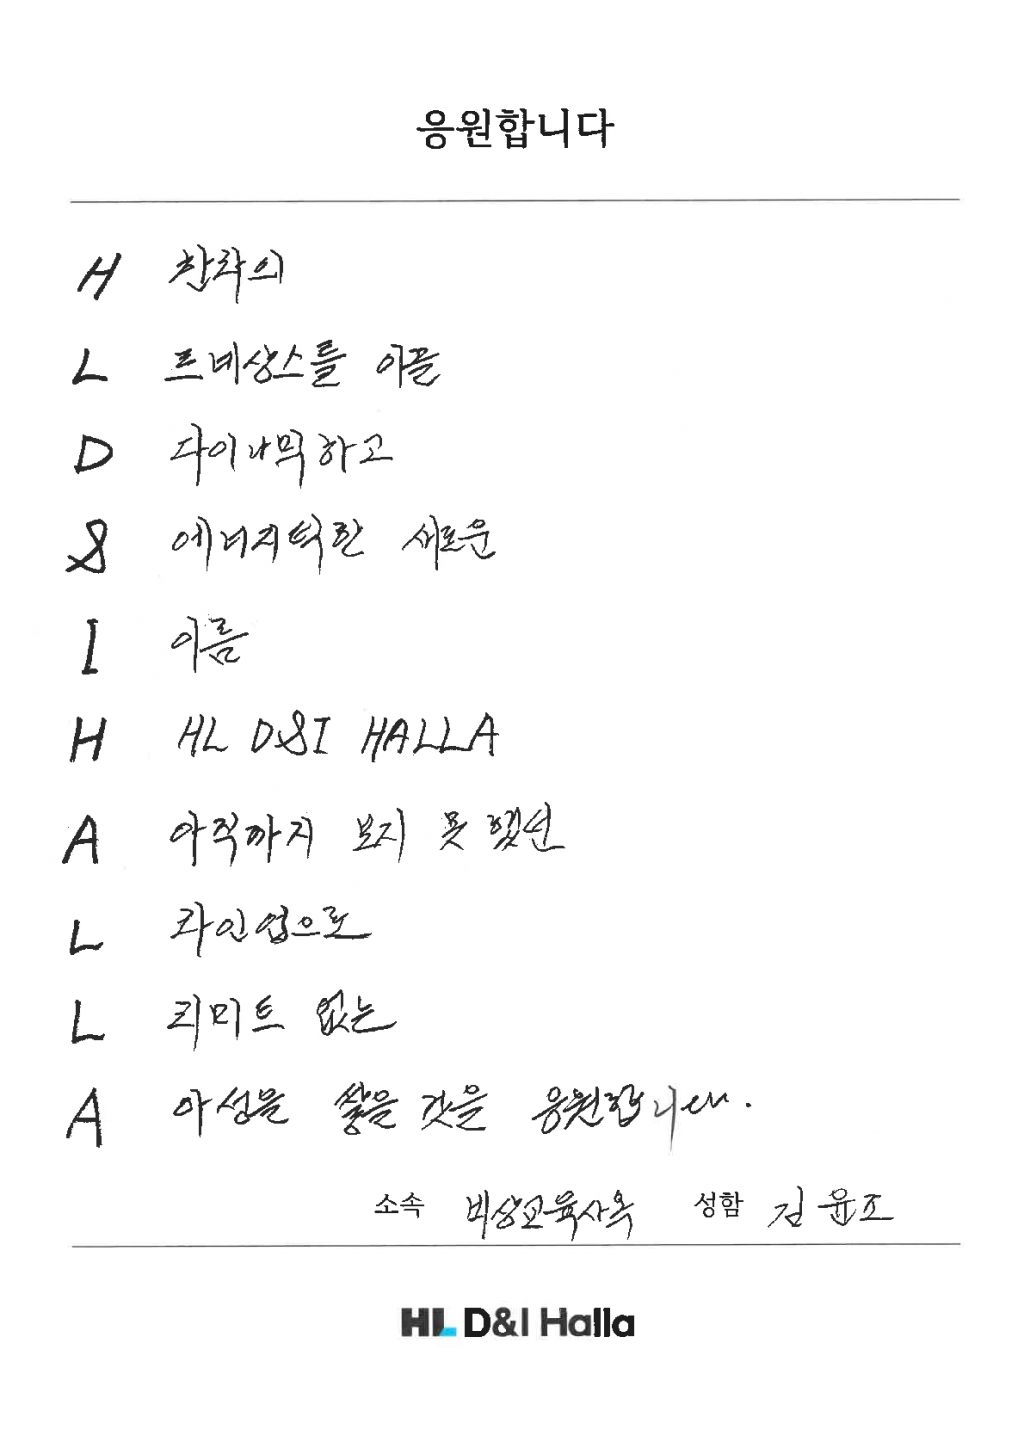 응원합니다
H 한라의
L 르네상스를 이끌
D 다이나믹하고
& 에너지틱한 새로운
I 이름
H HL D&I HALLA
A 아직까지 보지 못했던
L 라인업으로
L 리미트 없는
A 아성을 쌓을 것을 응원합니다.
소속 비상교육사옥 성함 김윤조
HL D&I Halla